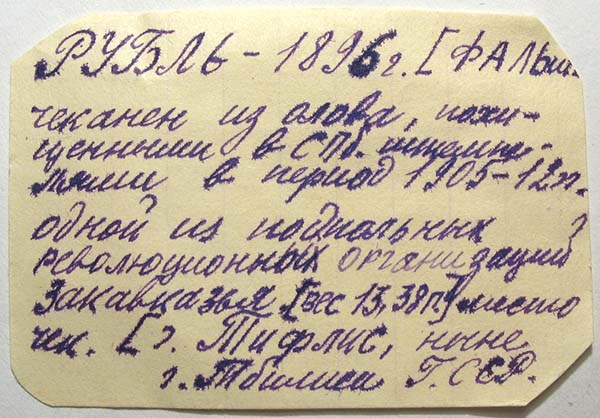 РУБЛЬ - 1896г. [ФАЛЬш.
чеканен из олова, похи-
щенными в СПб. штемпе-
лями в период 1905-12гг.
одной из подпольных
революционных организаций
Закавказья [вес 13,38г.] место
чек. [г. Тифлис, ныне
г. Тбилиси Г.ССР.